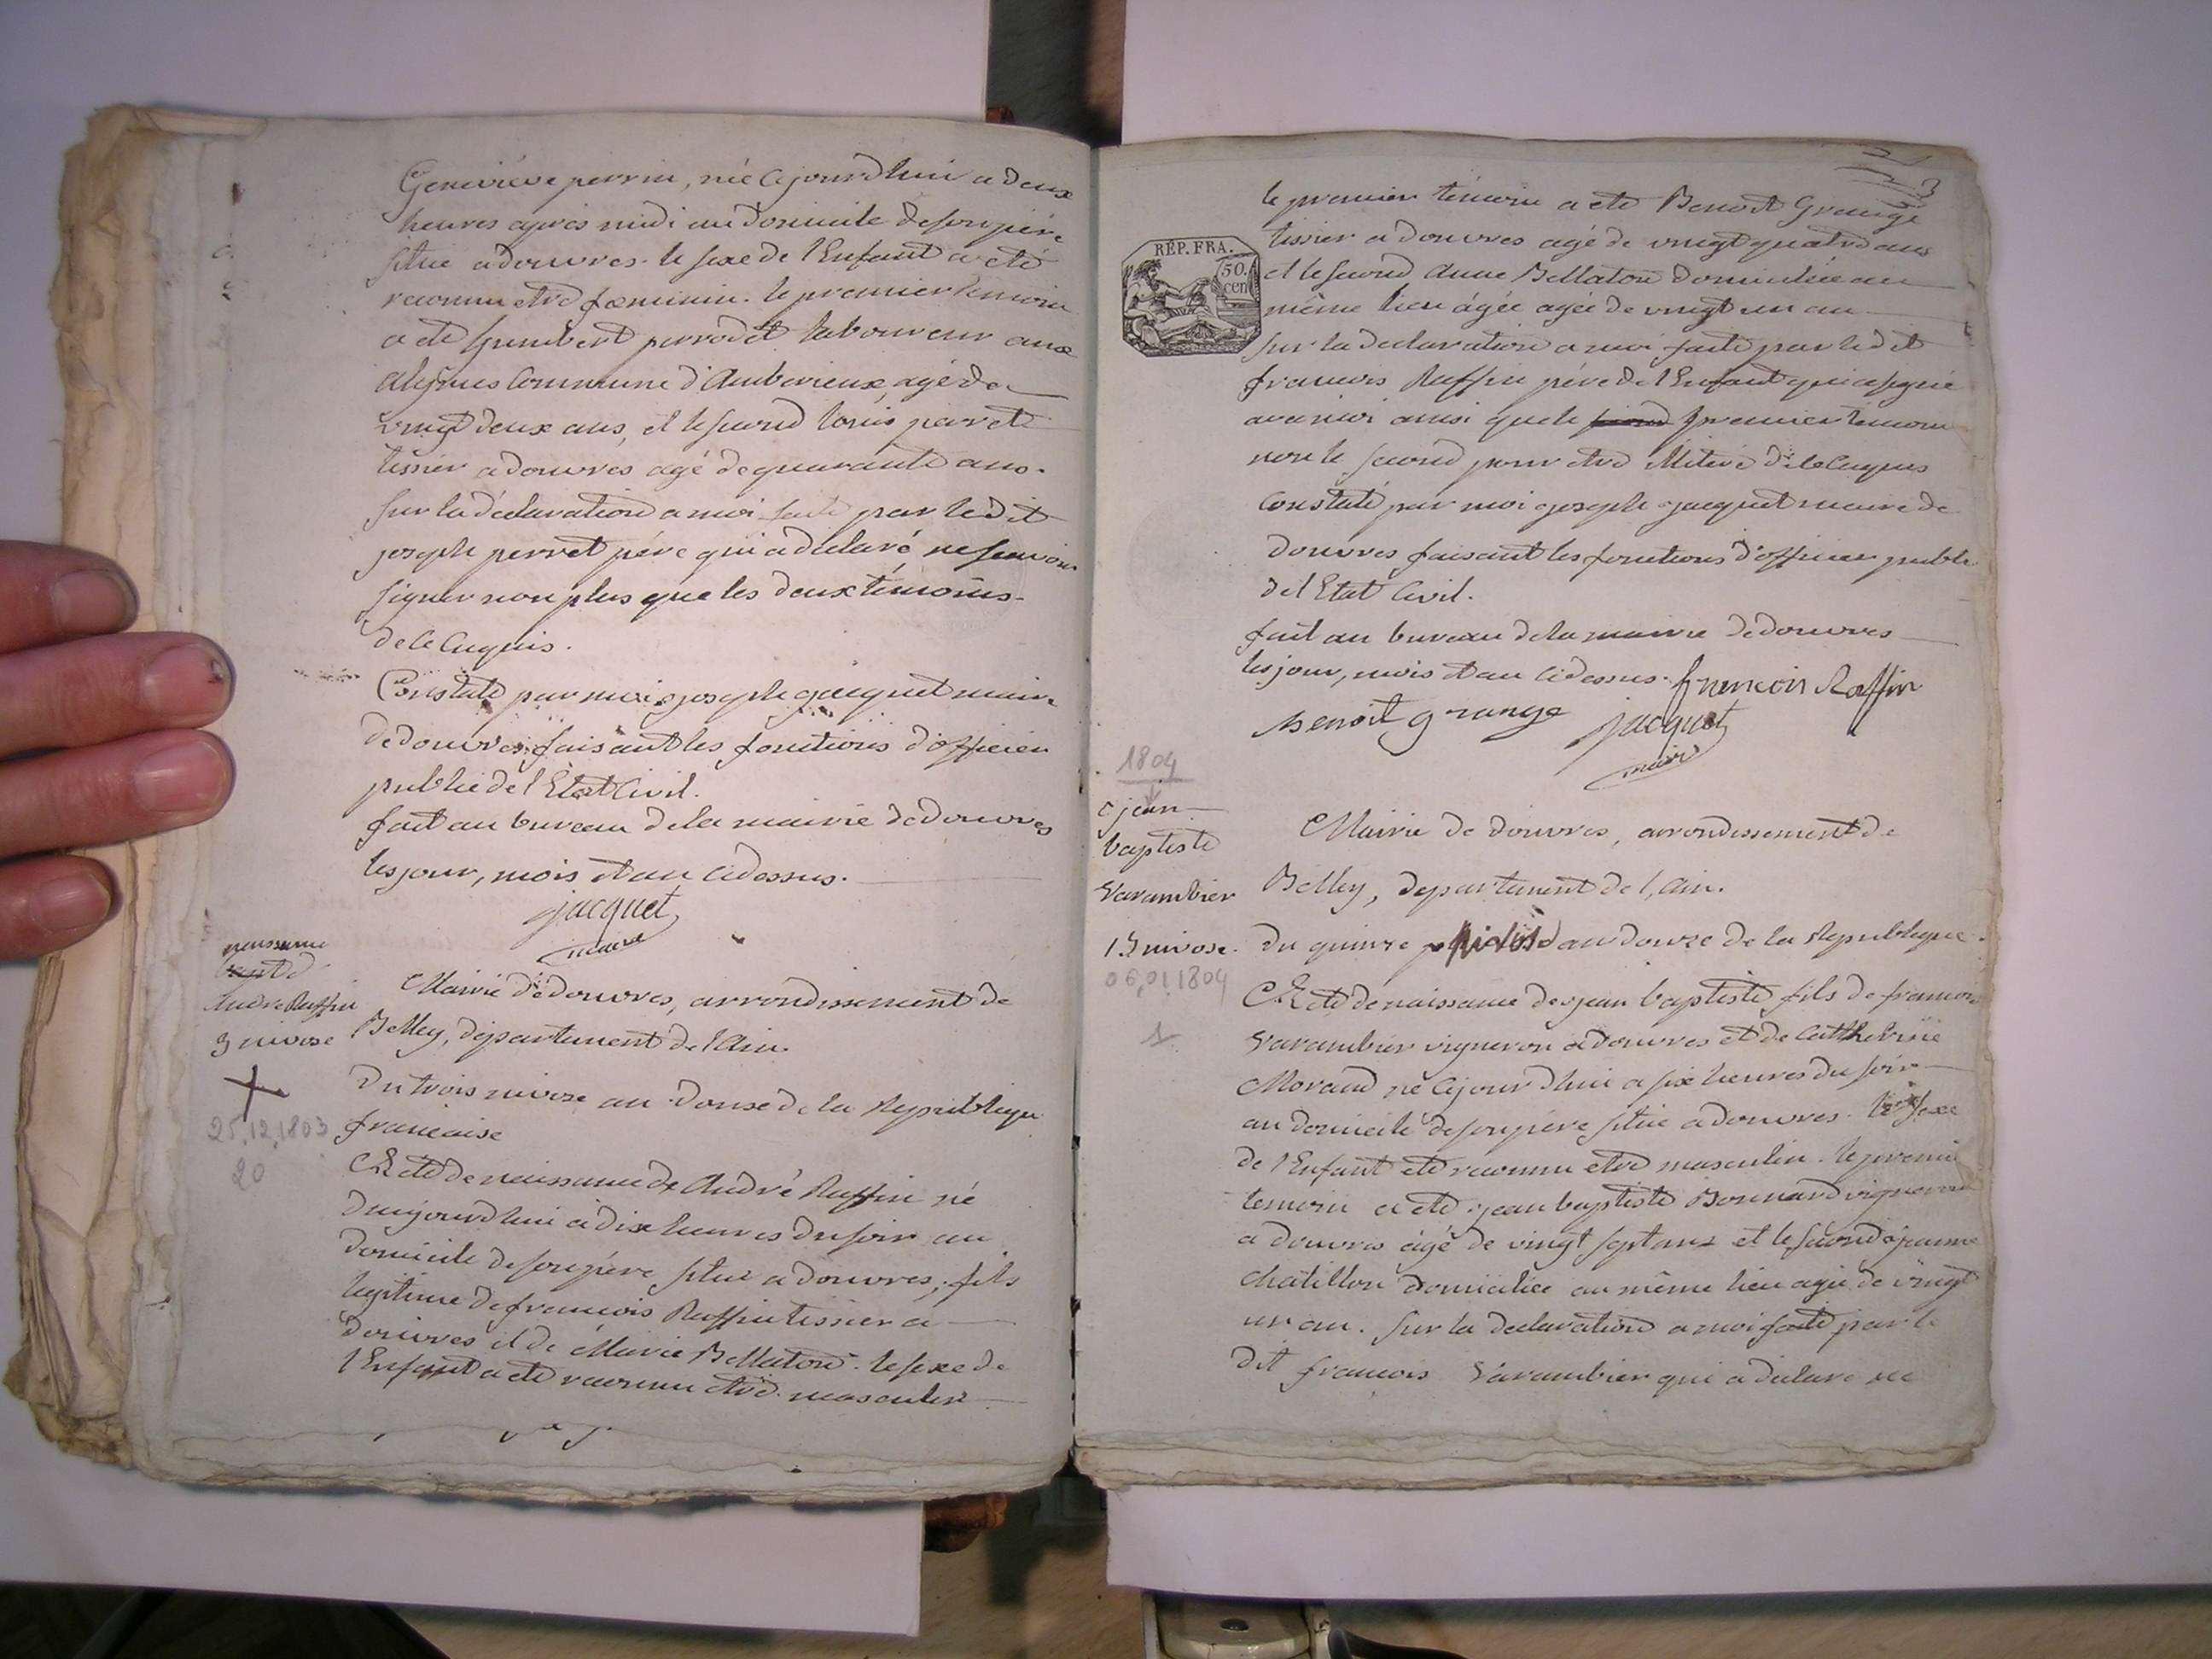 Geneviéve perrin, née Cejourd'hui a deux
heures après midi au domicile de son pére
situé a douvres. le sexe de l'Enfant a eté
reconnu etre fœminin. le premier temoin
a eté humbert perrodet laboureur aux
alymes Commune d'Ambérieux, agé de
vingt deux ans, et le second louis perret
tissier a douvres agé de quarante ans.
sur la déclaration a moi faite par le dit
joseph perret pére qui a déclaré ne savoir
signer non plus que les deux témoins
de ce Enquis.
Constaté par moi joseph jacquet maire
de douvres, faisant les fonctions d'officier
public de l'Etat Civil.
fait au bureau de la mairie de douvres
les jour, mois et an cidessus.
jacquet
maire
naissance
André Ruffin
3 nivose
25.12.1803
20
Mairie de douvres, arrondissement de
Belley, département de l'Ain.
Du trois nivose an douze de la Republique
francaise
Acte de naissance de André Ruffin né
Aujourd'hui a dix heures du soir au
domicile de son pére situé a douvres, fils
légitime de francois Ruffin tissier a
douvres et de Marie Bellaton. le sexe de
l'Enfant a eté reconnu etre masculin
3
le premier témoin a eté Benoit Grange
tissier a douvres agé de vingt quatre ans
RÉP. FRA.
50.
cen
et le second Anne Bellaton domiciliée au
même lieu agée agée de vingt un an
sur la declaration a moi faite par le dit
francois Ruffin pére de l'Enfant qui a signé
avec moi ainsi que le second premier temoin
non le second pour etre Illitéré de ce Enquis
Constaté par moi joseph jacquet maire de
douvres faisant les fonctions d'officier public
de l'Etat Civil.
fait au bureau de la mairie de douvres
les jour, mois et an cidessus. francois Raffin
Benoit grange jacquet
maire
1804
jean
baptiste
Varambier
15 nivose.
06.01.1804
1
Mairie de douvres, arrondissement de
Belley, departement de l'Ain.
Du quinze nivose an douze de la Republique.
Acte de naissance de jean baptiste fils de francois
Varambier vigneron a douvres et de Catherine
Morand né Cejourd'hui a six heures du soir
au domicile de son pére situé a douvres. le sexe
de l'Enfant eté reconnu etre masculin. le premier
temoin a eté jean baptiste Bonnard vigneron
a douvres agé de vingt sept ans et le second jeanne
Chatillon domiciliée au même lieu agée de vingt
un an. sur la declaration a moi faite par le
dit francois Varambier qui a declaré ne